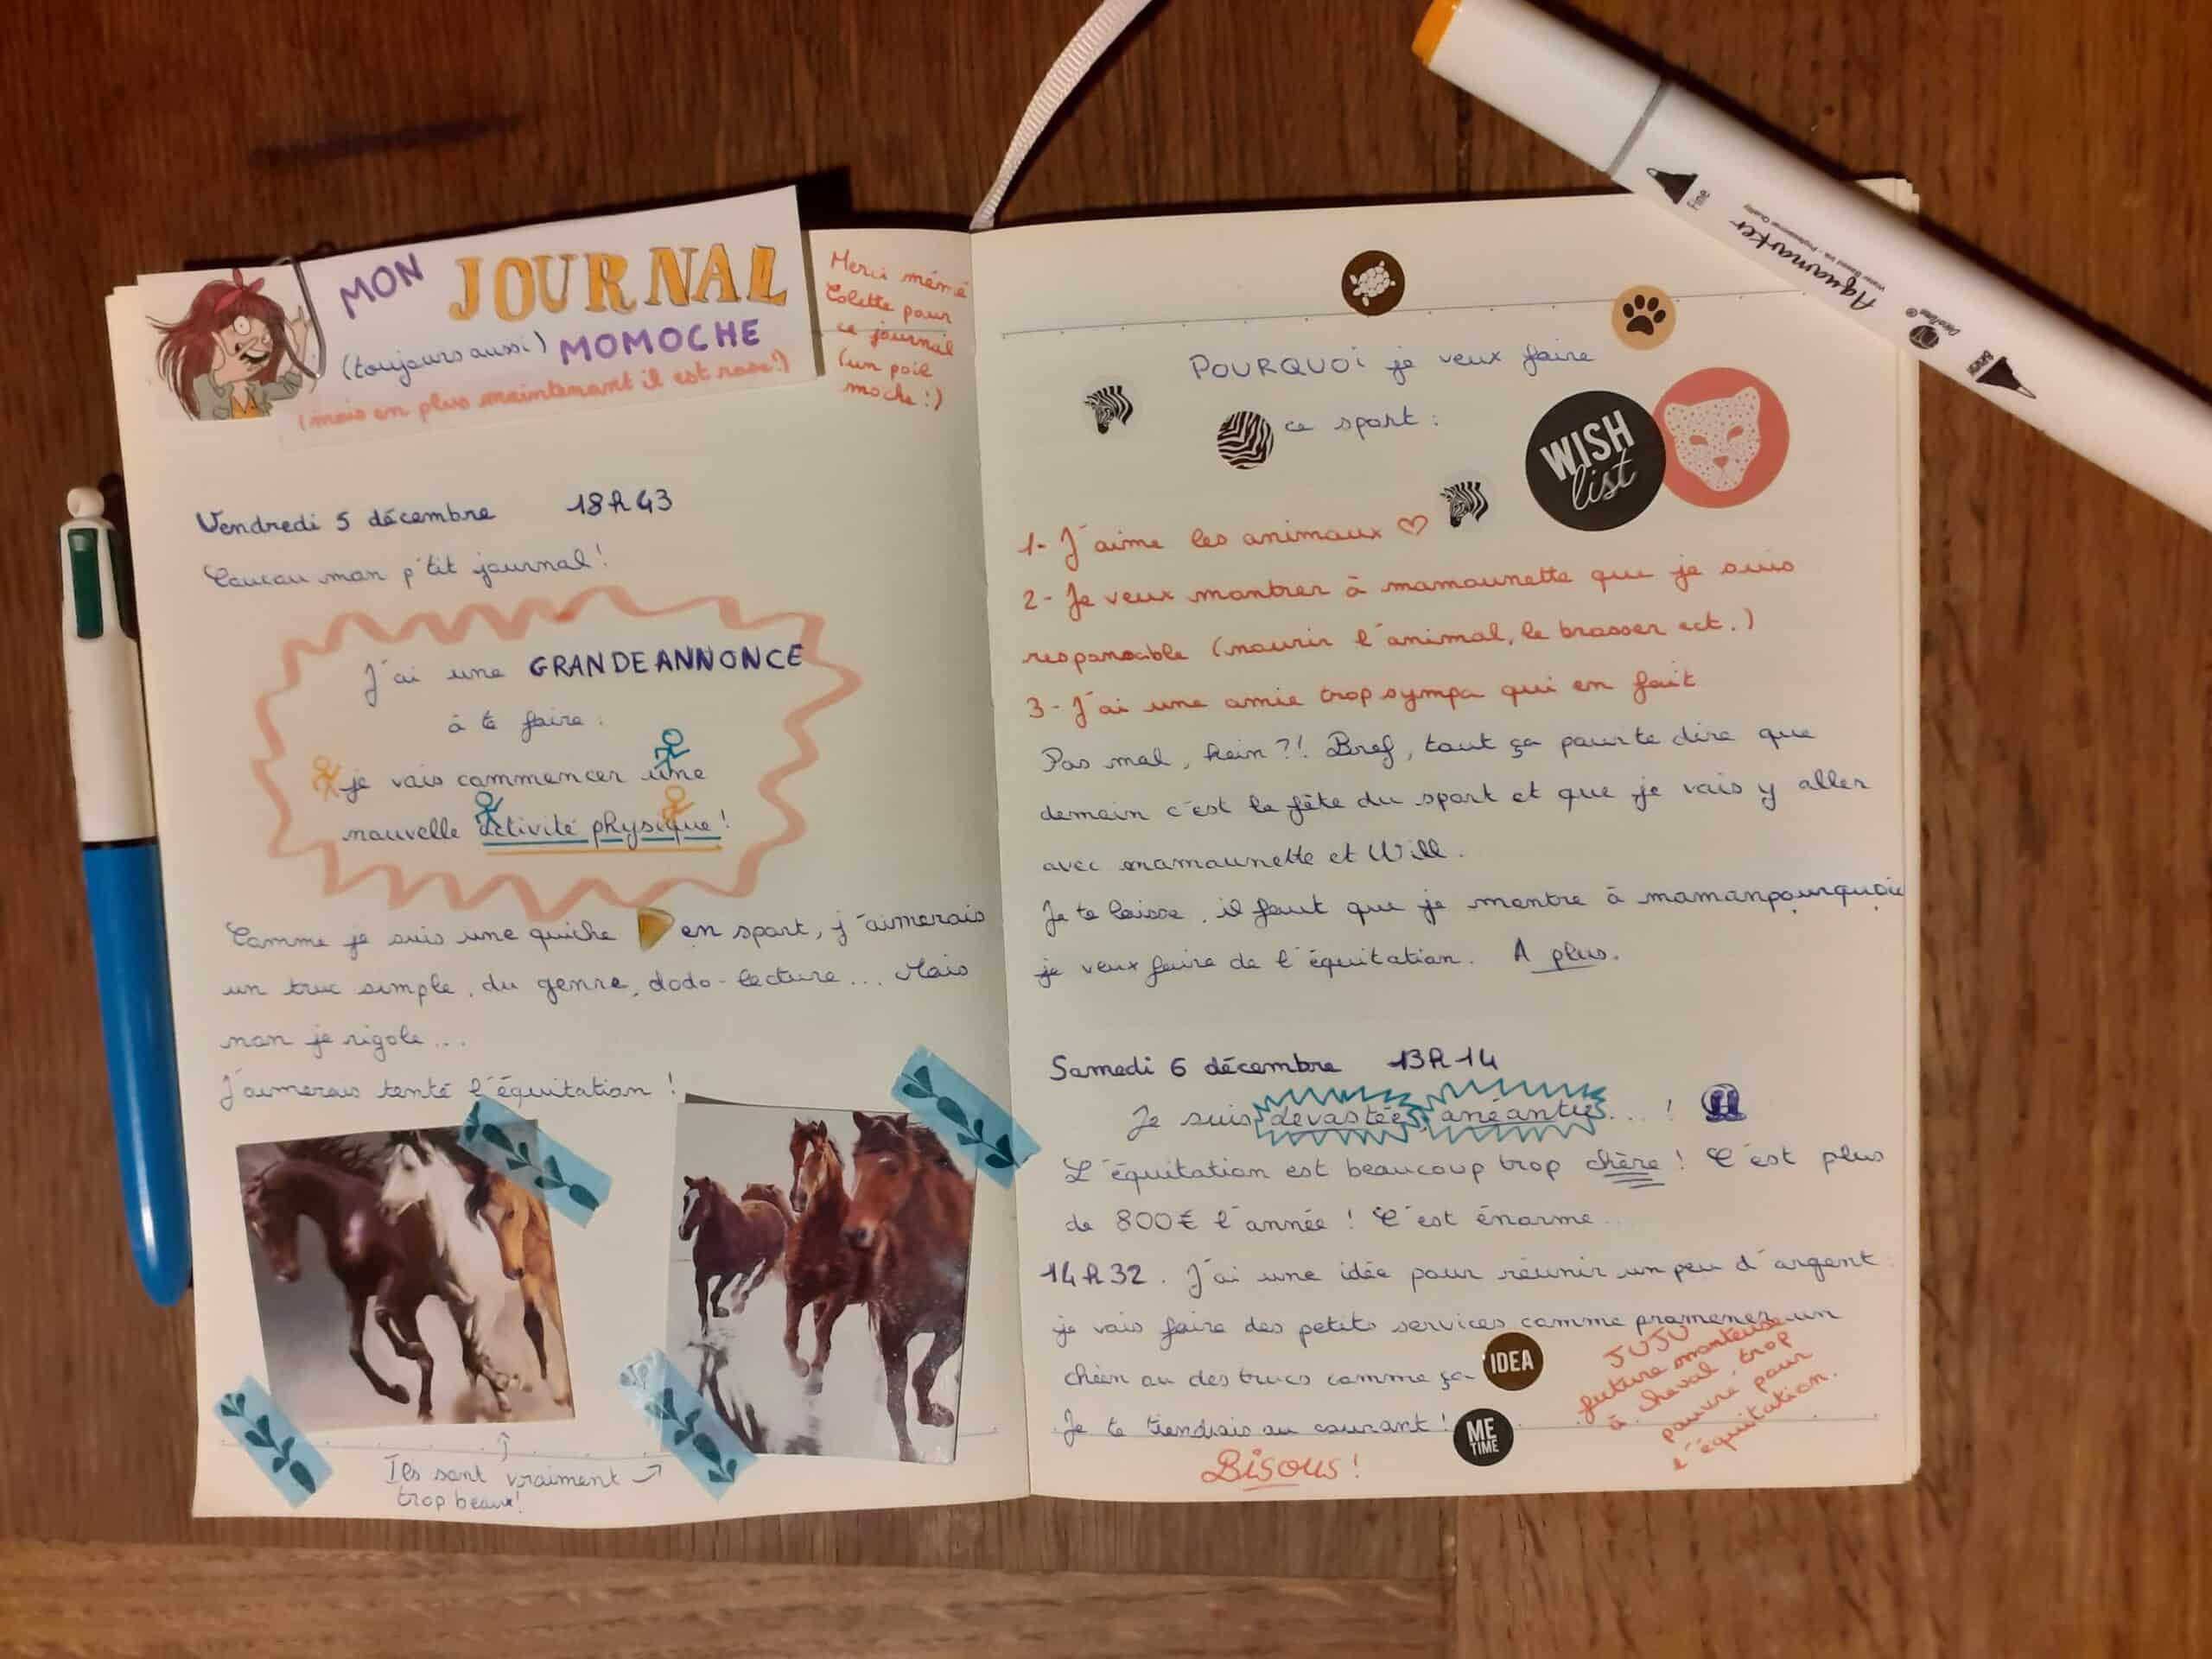 MON JOURNAL
(toujours aussi) MOMOCHE
(mais en plus maintenant il est rose!)
Merci mémé
Colette pour
ce journal
(un poil
moche!)
Vendredi 5 décembre 18h43
Coucou mon p'tit journal!
J'ai une GRANDE ANNONCE
à te faire :
je vais commencer une
nouvelle activité physique!
Comme je suis une quiche en sport, j'aimerais
un truc simple, du genre, dodo-lecture... Mais
non je rigole...
J'aimerais tenté l'équitation!
Ils sont vraiment
trop beaux!
POURQUOI je veux faire
ce sport :
WISH
list
1- J'aime les animaux ♡
2- Je veux montrer à mamounette que je suis
responsable (nourir l'animal, le brosser ect.)
3- J'ai une amie trop sympa qui en fait
Pas mal, hein?! Bref, tout ça pour te dire que
demain c'est la fête du sport et que je vais y aller
avec mamounette et Will.
Je te laisse, il faut que je montre à maman pourquoi
je veux faire de l'équitation. A plus.
Samedi 6 décembre 13h14
Je suis dévastée, anéantie...!
L'équitation est beaucoup trop chère! C'est plus
de 800€ l'année! C'est énorme...
14h32. J'ai une idée pour réunir un peu d'argent :
je vais faire des petits services comme promener un
chien ou des trucs comme ça
IDEA
Je te tiendrais au courant!
ME
TIME
Bisous!
JUJU
future monteuse
à cheval trop
pauvre pour
l'équitation.
Fine
Aquamarker
Water Based Ink - Professional Quality
Brush